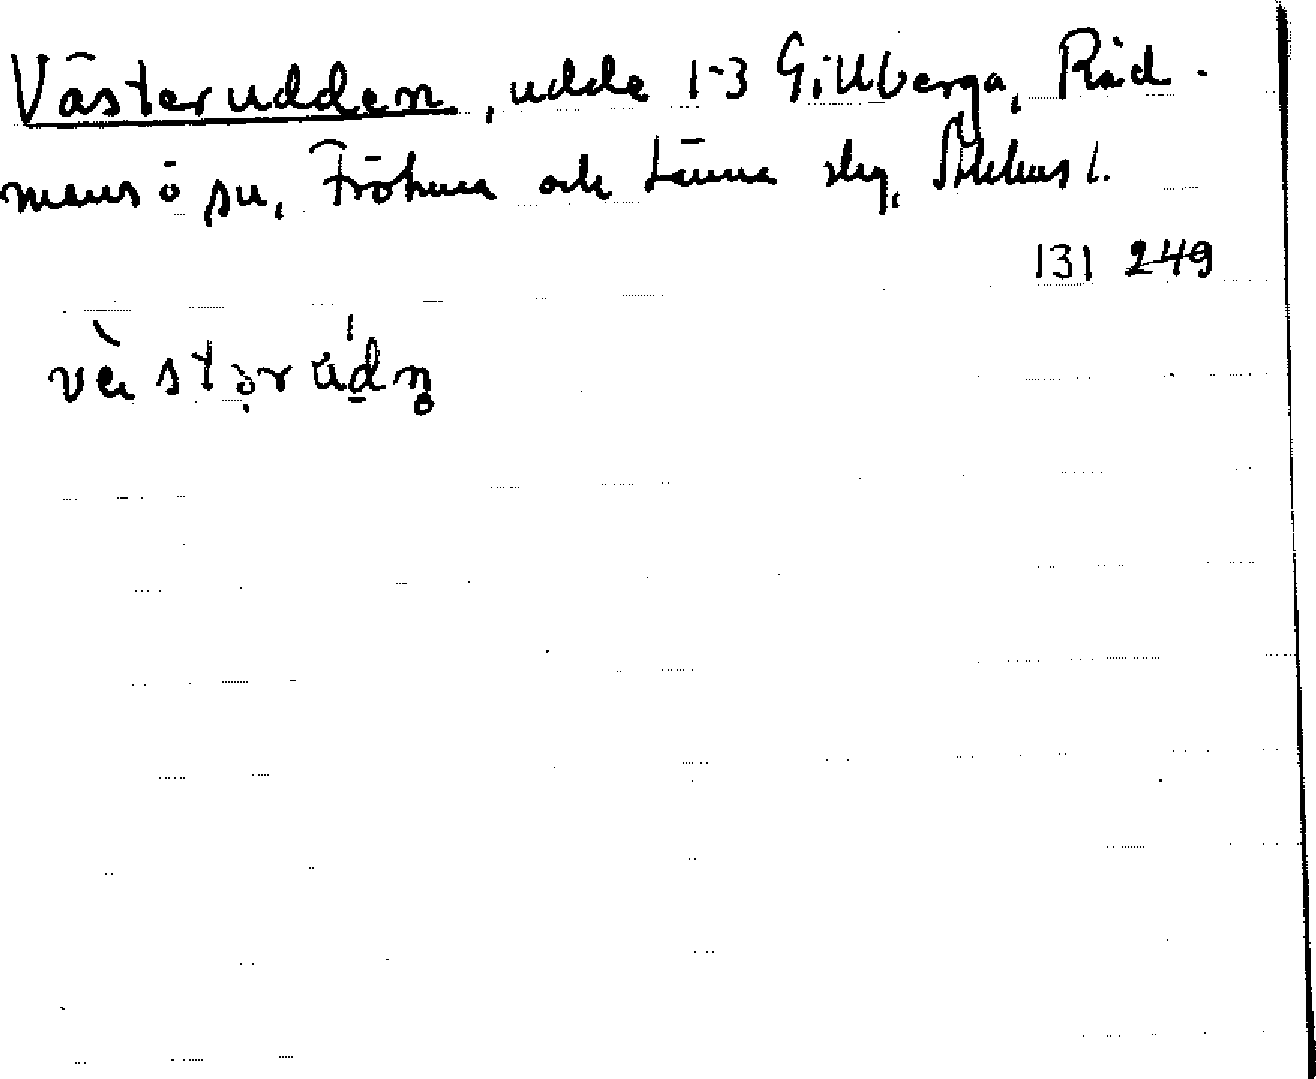 Västerudden, udde 1-3 Gillberga, Råd-
mansö sn, Fröhuna och Länna skg, Sthlms l.
131 249
vèstərúdn̥